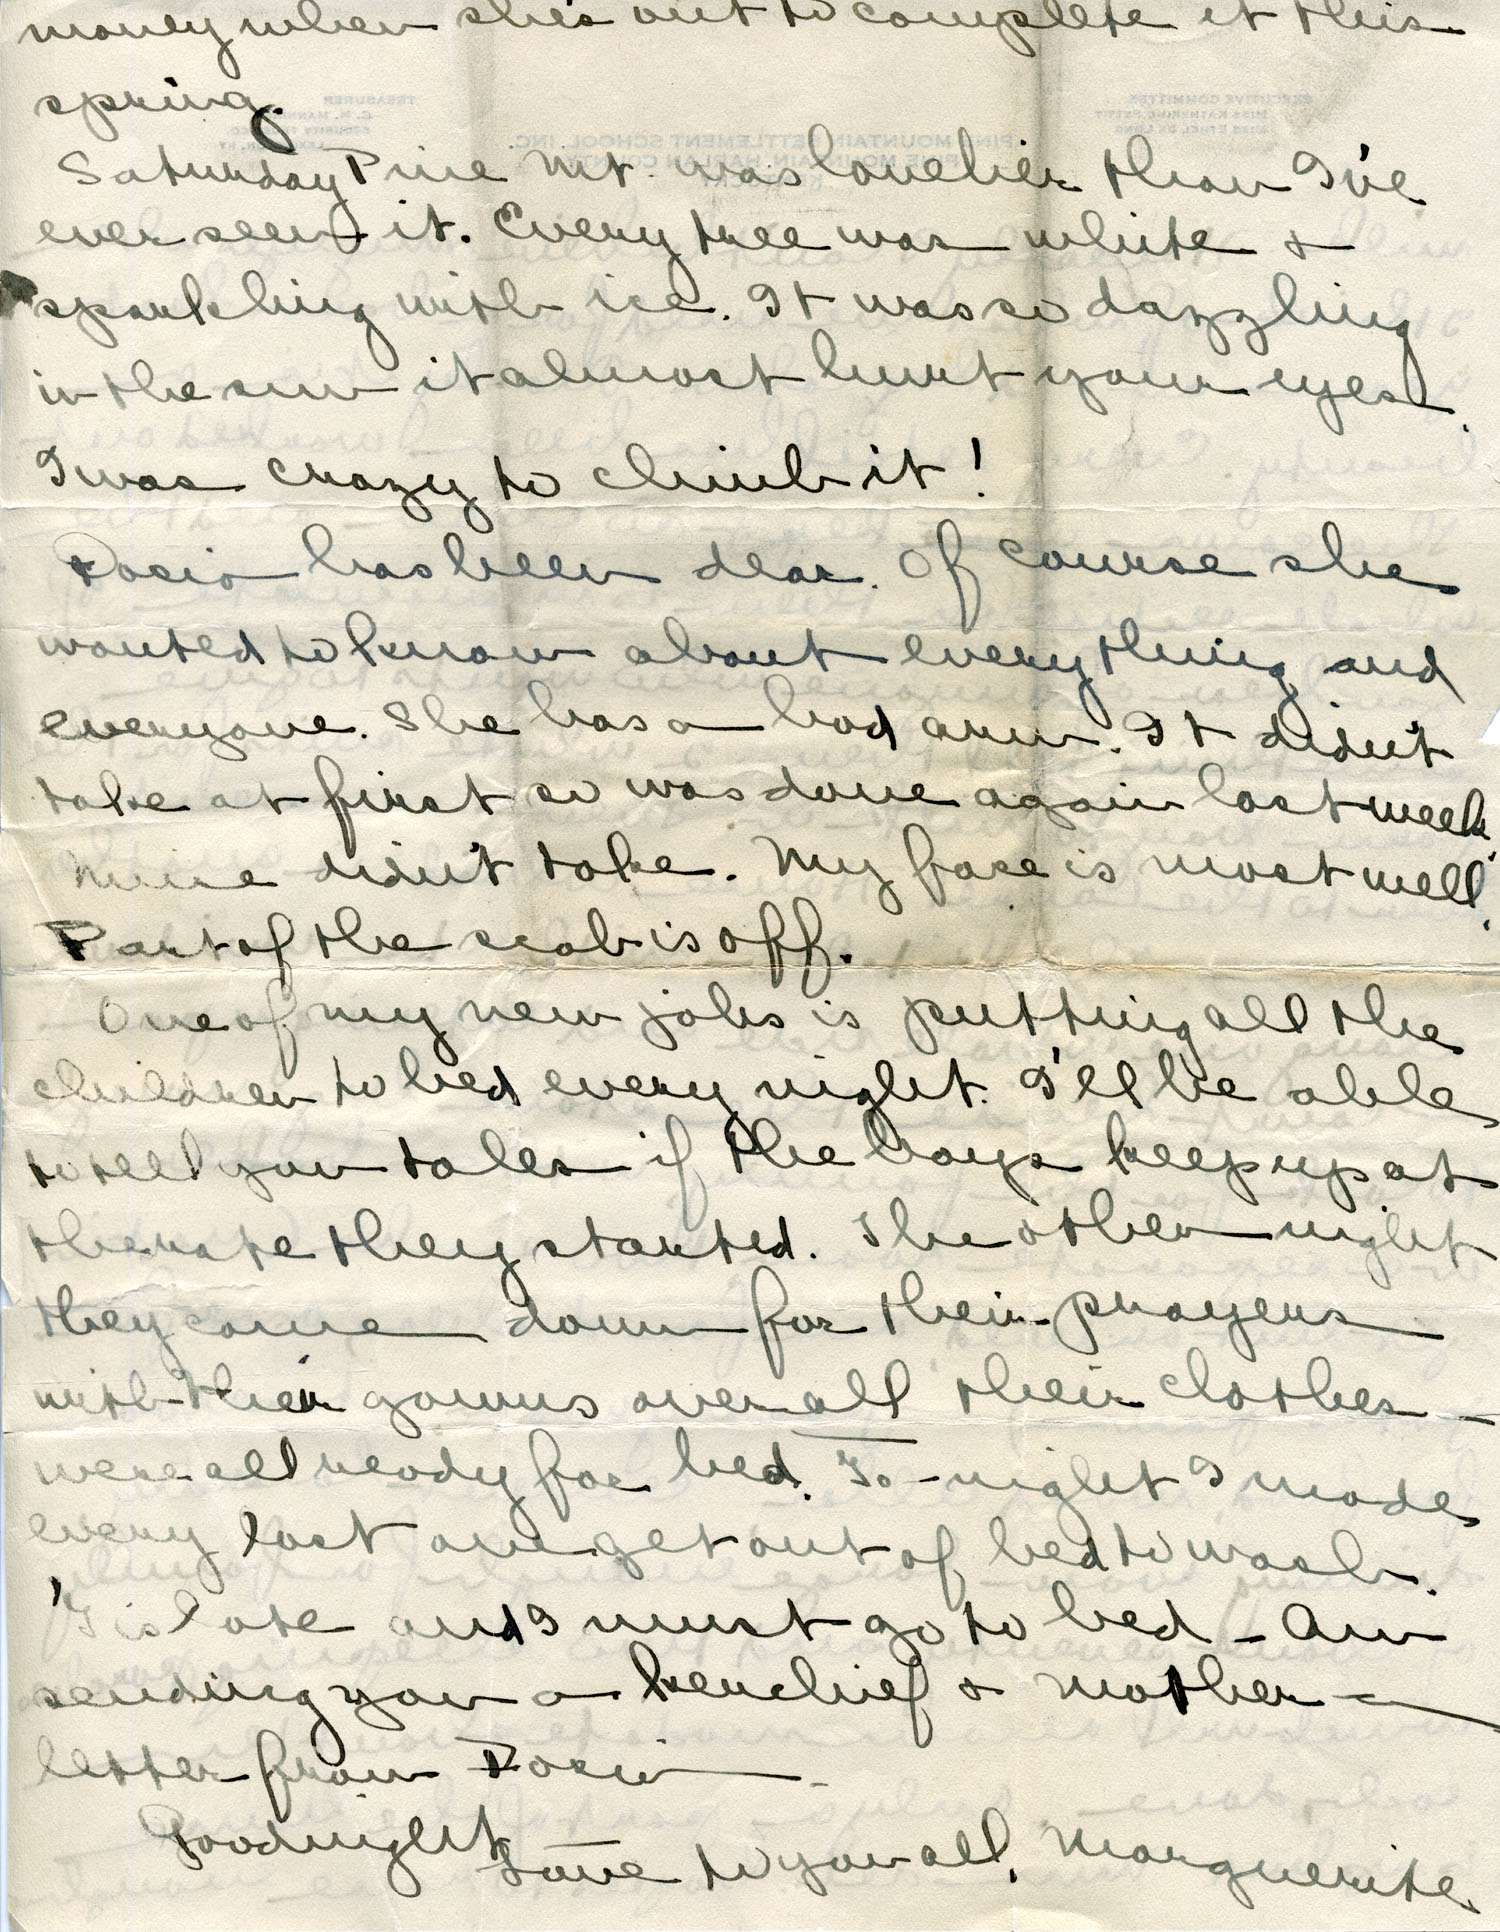 money when she's out to complete it this
spring.
Saturday Pine Mt. was lovelier than I've
ever seen it. Every tree was white &
sparkling with ice. It was so dazzling
in the sun it almost hurt your eyes.
I was crazy to climb it!
has been dear. Of course she
wanted to know about everything and
everyone. She has a bad arm. It didn't
take at first so was done again last week.
Mine didn't take. My face is most well.
Part of the scab is off.
One of my new jobs is putting all the
children to bed every night. I'll be able
to tell you tales if the boys keep up at
the rate they started. The other night
they came down for their prayers
with their gowns over all their clothes –
were all ready for bed. To-night I made
every last one get out of bed to wash.
'Tis late and I must go to bed – Am
sending you a kerchief & mother a
letter from
Goodnight
Love to you all, Marguerite.
EXECUTIVE COMMITTEE
MISS KATHERINE PETTIT
MISS ETHEL DE LONG
PINE MOUNTAIN SETTLEMENT SCHOOL, INC.
PINE MOUNTAIN, HARLAN COUNTY
KENTUCKY
TREASURER